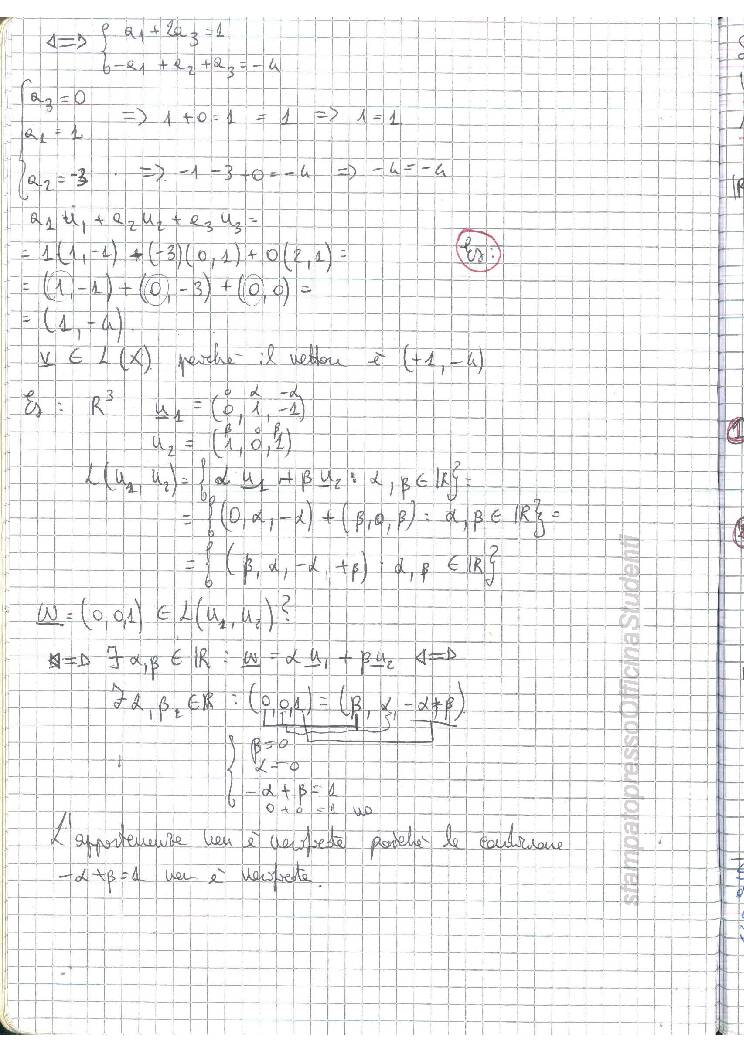 ⟺ { a1 + 2a3 = 1
-a1 + a2 + a3 = -4
{ a3 = 0
a1 = 1 => 1 + 0 = 1 = 1 => 1 = 1
a2 = -3 => -1 -3 +0 = -4 => -4 = -4
a1 u1 + a2 u2 + a3 u3 =
= 1(1, -1) + (-3)(0, 1) + 0(2, 1) =
Es:
= (1, -1) + (0, -3) + (0, 0) =
= (1, -4)
v ∈ L(X) perché il vettore è (+1, -4)
0 α -α
Es: R³ u1 = (0, 1, -1)
β 0 β
u2 = (1, 0, 1)
L(u1, u2) = { α u1 + β u2 : α, β ∈ ℝ } =
= { (0, α, -α) + (β, 0, β) : α, β ∈ ℝ } =
= { (β, α, -α, +β) : α, β ∈ ℝ }
w = (0,0,1) ∈ L(u1, u2)?
⟺ ∃ α, β ∈ ℝ : w = α u1 + β u2 ⟺
∃ α, β ∈ ℝ : (0,0,1) = (β, α, -α+β)
{ β = 0
α = 0
-α + β = 1
0 + 0 = 1 no
L'appartenenza non è verificata poiché la condizione
-α + β = 1 non è verificata.
stampatopressoOfficinaStudenti